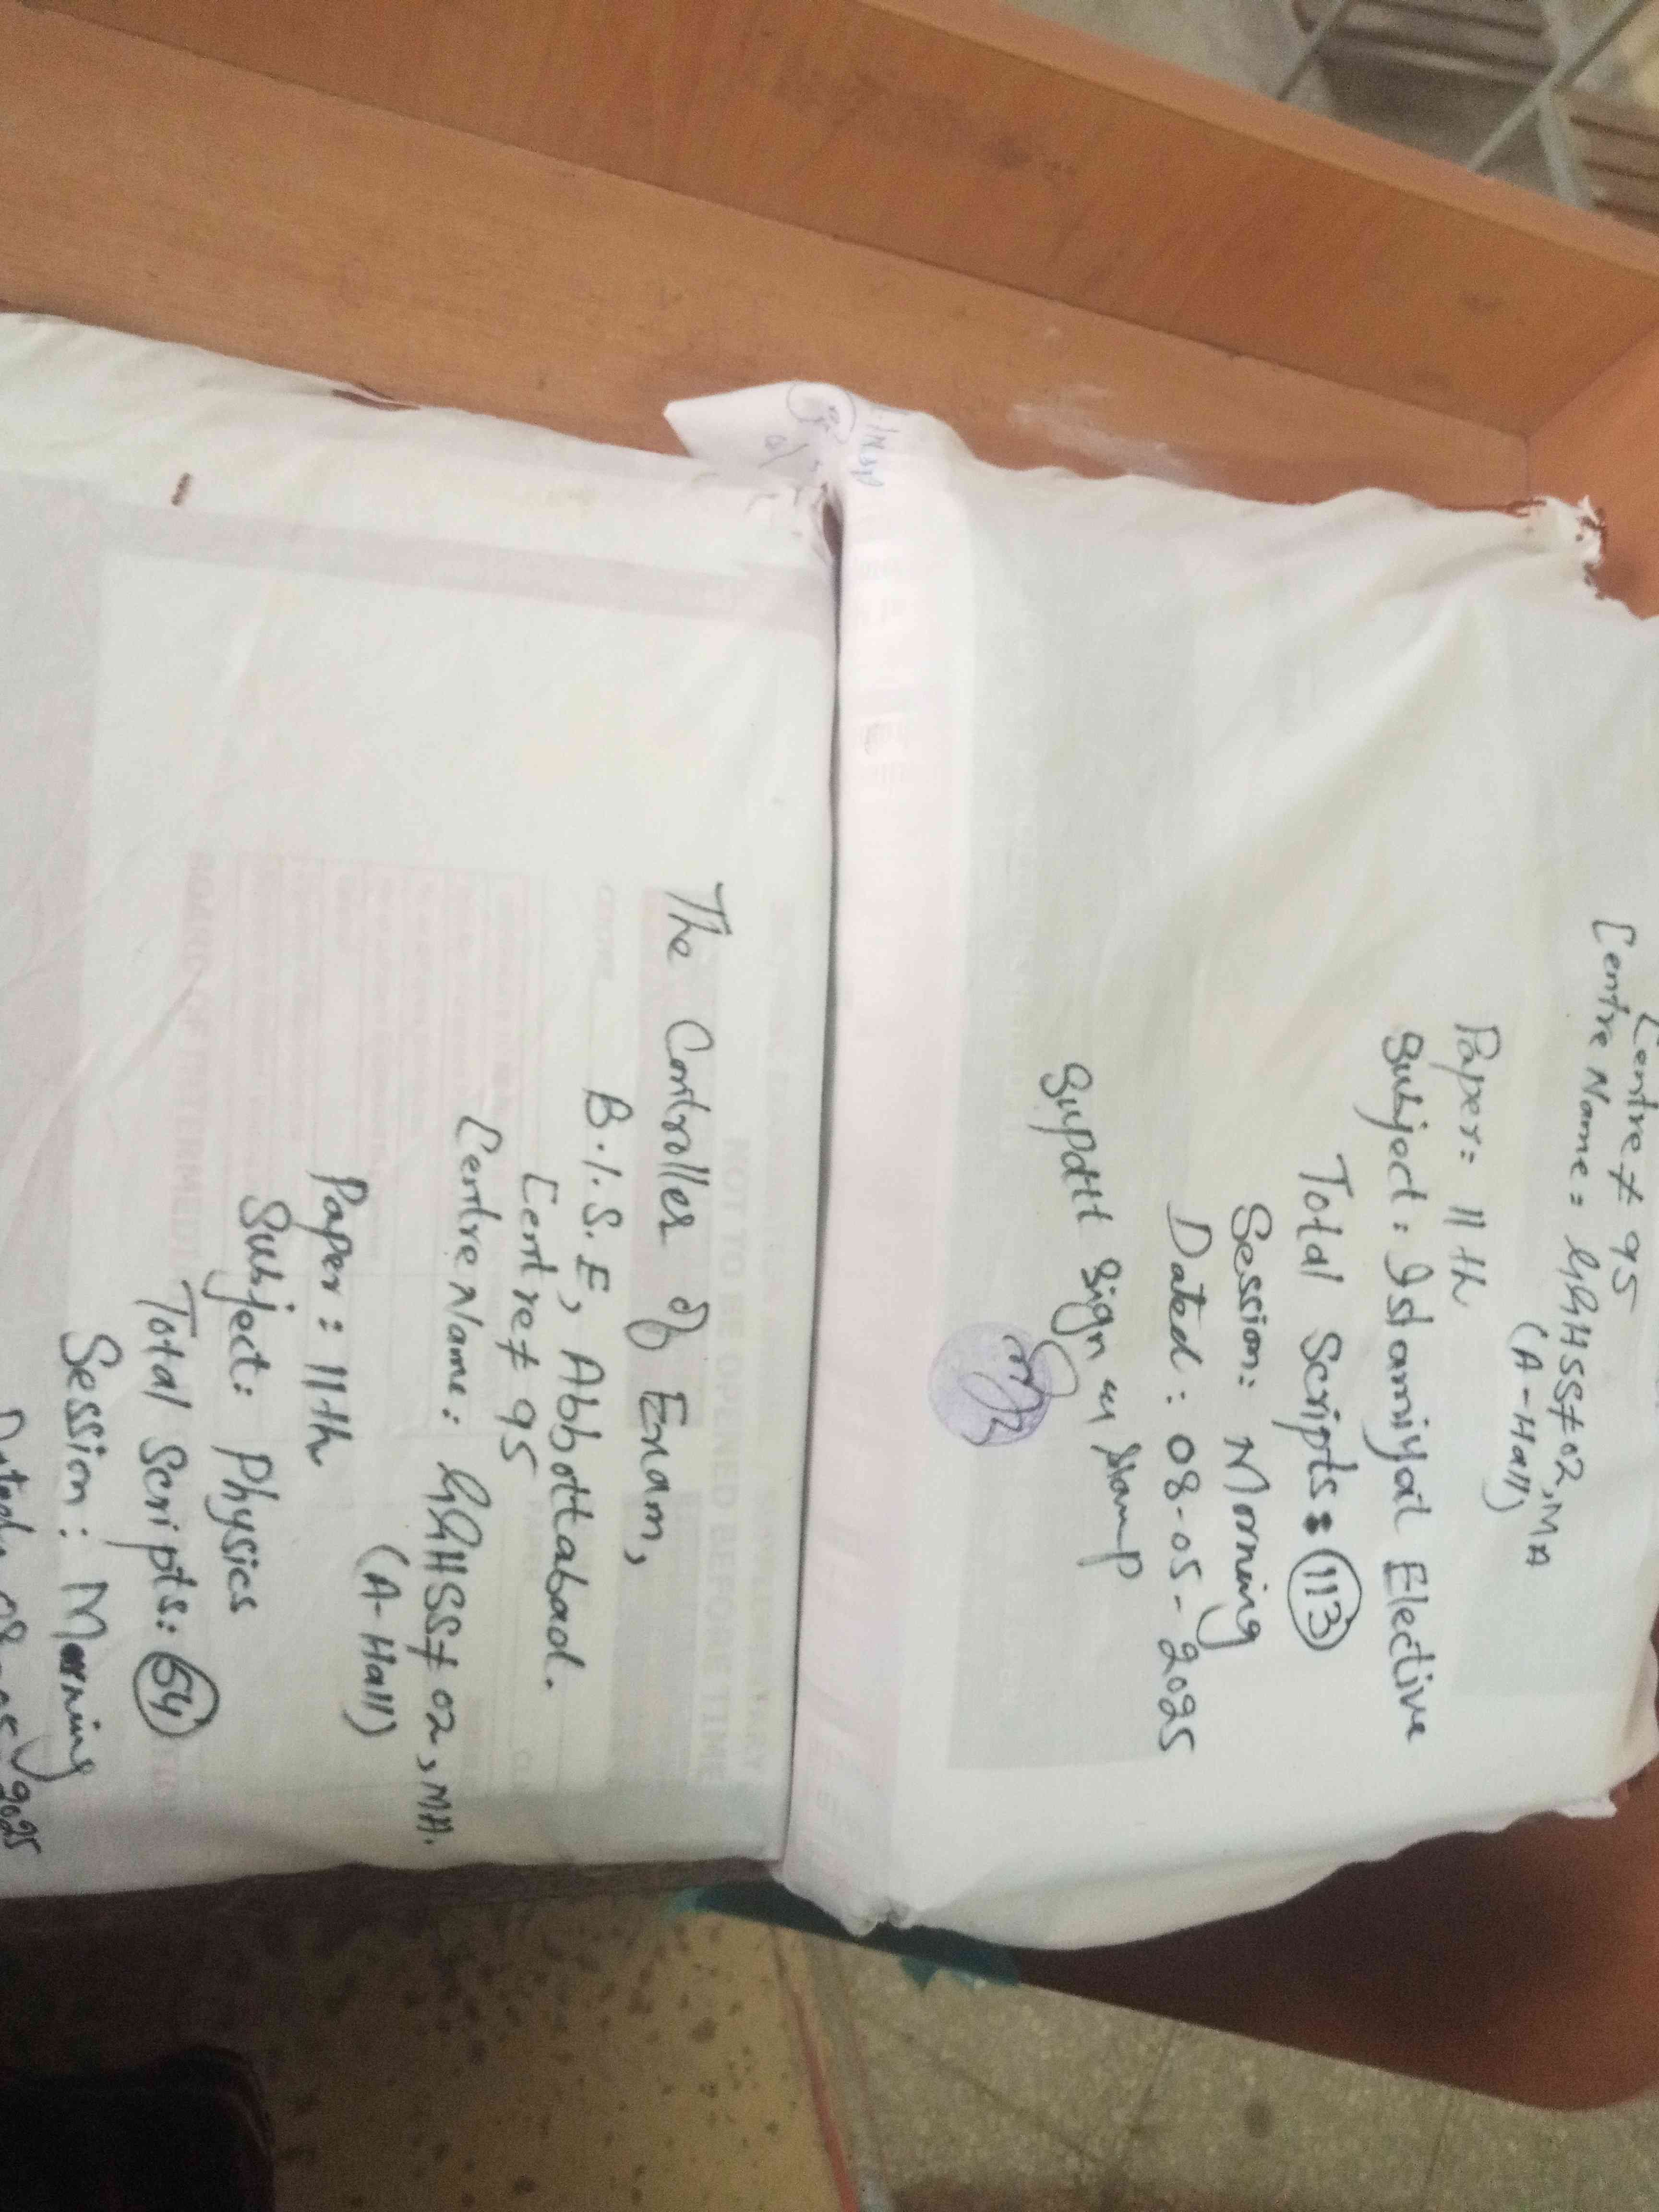 Centre # 95
Centre Name: GGHSS # 02, MA
(A-Hall)
Paper: 11th
Subject: Islamiyat Elective
Total Scripts: 113
Session: Morning
Dated: 08-05-2025
Supdtt Sign w Stamp
The Controller of Exam,
B.I.S.E, Abbottabad.
Centre # 95
Centre Name: GGHSS # 02, MA.
(A-Hall)
Paper: 11th
Subject: Physics
Total Scripts: 54
Session: Morning
NOT TO BE OPENED BEFORE TIME